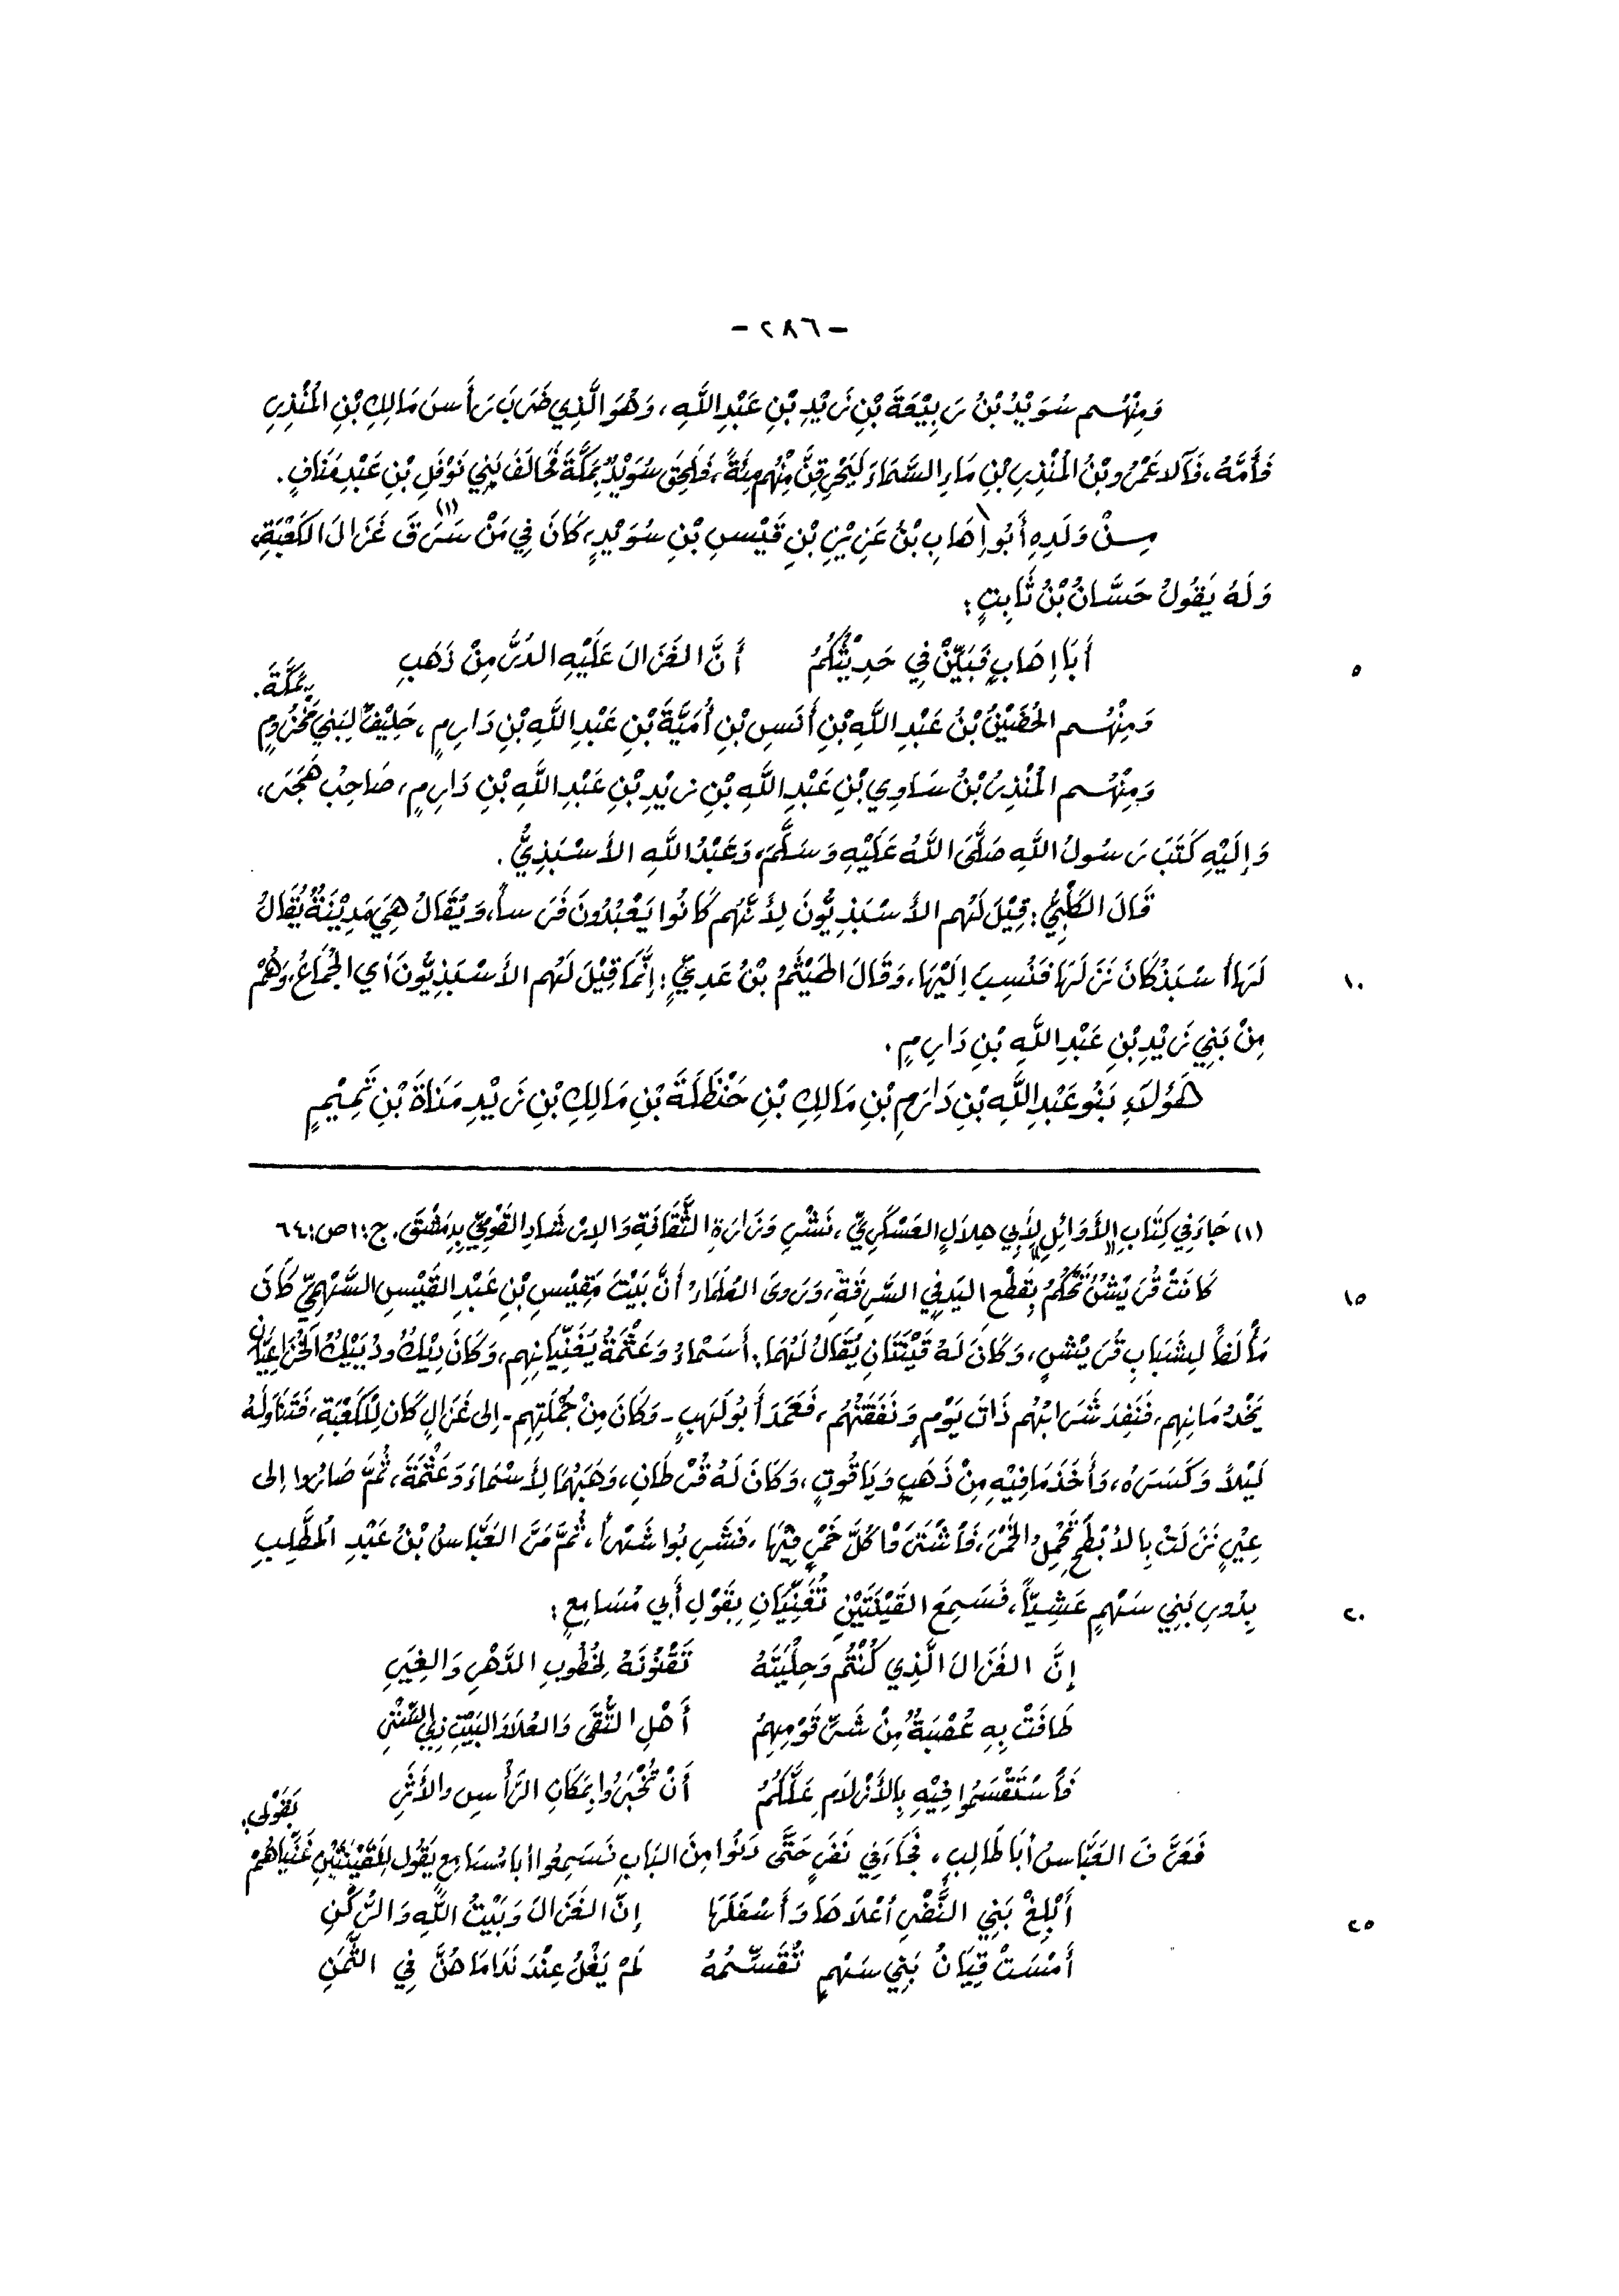 - ٢٨٦ -
وَمِنْهُم سُوَيْدُ بْنُ رَبِيْعَةَ بْنِ زَيْدِ بْنِ عَبْدِ اللَّهِ، وَهُوَ الَّذِي ضَرَبَ رَأْسَ مَالِكِ بْنِ الْمُنْذِرِ
فَأَمَّهُ، فَآلَا عَمْرُو بْنُ الْمُنْذِرِ بْنِ مَاءِ السَّمَاءِ لَيَحْرِقِنَّ مِنْهُم مِئَةً، فَلَحِقَ سُوَيْدٌ بِمَكَّةَ فَحَالَفَ بَنِي نَوْفَلِ بْنِ عَبْدِ مَنَافٍ.
مِنْ وَلَدِهِ أَبُو إِهَابِ بْنُ عَزِيْزِ بْنِ قَيْسِ بْنِ سُوَيْدٍ، كَانَ فِي مَنْ سَرَقَ (١) غَزَالَ الكَعْبَةِ،
وَلَهُ يَقُولُ حَسَّانُ بْنُ ثَابِتٍ:
أَبَا إِهَابٍ فَبَيِّنْ فِي حَدِيْثُكُمُ أَنَّ الغَزَالَ عَلَيْهِ الدُّرُّ مِنْ ذَهَبِ
٥
وَمِنْهُم الحُضَيْنُ بْنُ عَبْدِ اللَّهِ بْنِ أَنَسِ بْنِ أُمَيَّةَ بْنِ عَبْدِ اللَّهِ بْنِ دَارِمٍ، حَلِيْفٌ لِبَنِي مَخْزُومٍ بِمَكَّةَ.
وَمِنْهُم الْمُنْذِرُ بْنُ سَاوِي بْنِ عَبْدِ اللَّهِ بْنِ زَيْدِ بْنِ عَبْدِ اللَّهِ بْنِ دَارِمٍ، صَاحِبُ هَجَرَ،
وَإِلَيْهِ كَتَبَ رَسُولُ اللَّهِ صَلَّى اللَّهُ عَلَيْهِ وَسَلَّمَ، وَعَبْدُ اللَّهِ الأَسْبَذِيُّ.
قَالَ الكَلْبِيُّ: قِيْلَ لَهُم الأَسْبَذِيُّونَ لِأَنَّهُم كَانُوا يَعْبُدُونَ فَرَساً، وَيُقَالُ هِيَ مَدِيْنَةٌ يُقَالُ
لَهَا أَسْبَذُ كَانَ نَزَلَهَا فَنُسِبَ إِلَيْهَا، وَقَالَ الهَيْثَمُ بْنُ عَدِيٍّ: إِنَّمَا قِيْلَ لَهُم الأَسْبَذِيُّونَ أَي الجُمَّاعُ، وَهُمْ
١٠
مِنْ بَنِي زَيْدِ بْنِ عَبْدِ اللَّهِ بْنِ دَارِمٍ.
هَؤُلَاءِ بَنُو عَبْدِ اللَّهِ بْنِ دَارِمِ بْنِ مَالِكِ بْنِ حَنْظَلَةَ بْنِ مَالِكِ بْنِ زَيْدِ مَنَاةَ بْنِ تَمِيْمٍ
(١) جَاءَ فِي كِتَابِ الأَوَائِلِ لِأَبِي هِلَالٍ العَسْكَرِيِّ، نَشْرِ وَزَارَةِ الثَّقَافَةِ وَالإِرْشَادِ القَوْمِيِّ بِدِمَشْقَ. ج: ١ ص: ٦٤
كَانَتْ قُرَيْشٌ تَحْكُمُ بِقَطْعِ اليَدِ فِي السَّرِقَةِ، وَرَوَى العُلَمَاءُ أَنَّ بَيْتَ مَقِيْسِ بْنِ عَبْدِ القَيْسِ السَّهْمِيِّ كَانَ
١٥
مَأْلَفاً لِشَبَابِ قُرَيْشٍ، وَكَانَ لَهُ قَيْنَتَانِ يُقَالُ لَهُمَا: أَسْمَاءُ وَعَثْمَةُ يُغَنِّيَانِهِم، وَكَانَ دِيْكٌ وَدُيَيْكٌ الخُزَاعِيَّانِ
يَخْدُمَانِهِم، فَنَفِدَ شَرَابُهُم ذَاتَ يَوْمٍ وَنَفَقَتُهُم، فَعَمَدَ أَبُو لَهَبٍ - وَكَانَ مِنْ جُمْلَتِهِم - إِلَى غَزَالٍ كَانَ لِلْكَعْبَةِ، فَتَنَاوَلَهُ
لَيْلاً وَكَسَرَهُ، وَأَخَذَ مَا فِيْهِ مِنْ ذَهَبٍ وَيَاقُوتٍ، وَكَانَ لَهُ قُرْطَانِ، وَهَبَهُمَا لِأَسْمَاءَ وَعَثْمَةَ، ثُمَّ صَارُوا إِلَى
عِيْرٍ نَزَلَتْ بِالأَبْطَحِ تَحْمِلُ الخَمْرَ، فَاشْتَرَوْا كُلَّ خَمْرٍ فِيْهَا، فَشَرِبُوا شَهْراً، ثُمَّ مَرَّ العَبَّاسُ بْنُ عَبْدِ الْمُطَّلِبِ
بِدُورِ بَنِي سَهْمٍ عَشِيّاً، فَسَمِعَ القَيْنَتَيْنِ تُغَنِّيَانِ بِقَوْلِ أَبِي مُسَامِعٍ:
٢٠
إِنَّ الغَزَالَ الَّذِي كُنْتُم وَحِلْيَتَهُ تَقْنُونَهُ لِخُطُوبِ الدَّهْرِ وَالغِيَرِ
طَافَتْ بِهِ عُصْبَةٌ مِنْ شَرِّ قَوْمِهِمُ أَهْلِ التُّقَى وَالعُلَا وَالبَيْتِ ذِي السُّتُرِ
فَاسْتَقْسَمُوا فِيْهِ بِالأَزْلَامِ عَلَّكُمُ أَنْ تُخْبَرُوا بِمَكَانِ الرَّأْسِ وَالأَثَرِ
فَعَرَّفَ العَبَّاسُ أَبَا طَالِبٍ، فَجَاءَ فِي نَفَرٍ حَتَّى دَنُوا مِنَ البَابِ فَسَمِعُوا أَبَا مُسَامِعٍ يَقُولُ لِلْقَيْنَتَيْنِ غَنِّيَاهُمْ بِقَوْلِي.
أَبْلِغْ بَنِي النَّضْرِ أَعْلَاهَا وَأَسْفَلَهَا إِنَّ الغَزَالَ وَبَيْتِ اللَّهِ وَالرُّكْنِ
٢٥
أَمْسَتْ قِيَانُ بَنِي سَهْمٍ تُقَسِّمُهُ لَمْ يَغْلُ عِنْدَ نَدَامَاهُنَّ فِي الثَّمَنِ